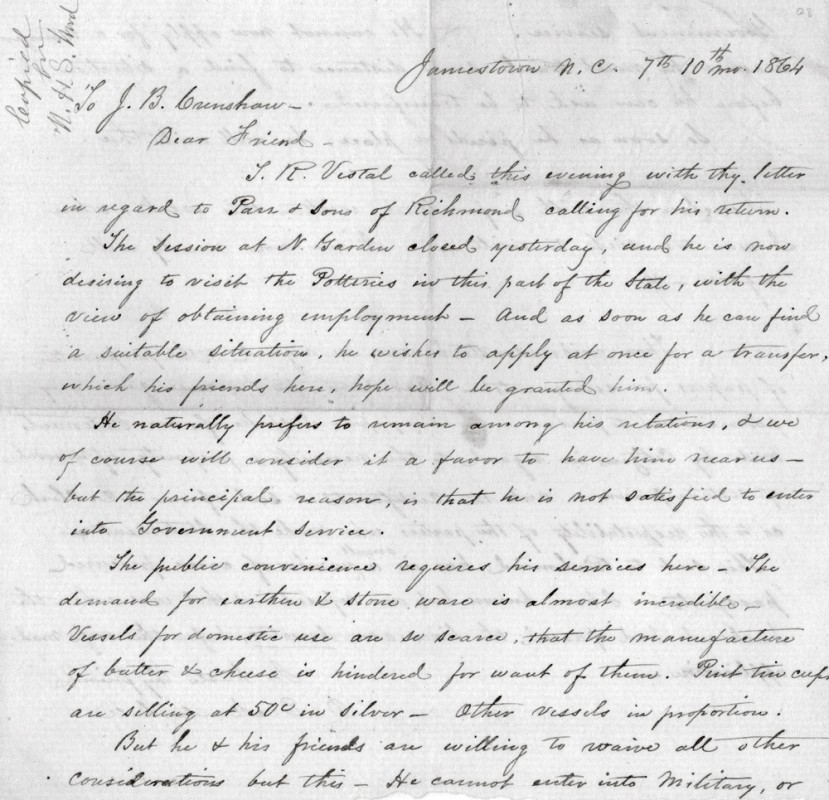 Copied
by
N. H. S. Wood
Jamestown N. C. 7th 10th mo. 1864
To J. B. Crenshaw -
Dear Friend -
T. R. Vestal called this evening with thy letter
in regard to Parr & Sons of Richmond calling for his return.
The Session at N. Garden closed yesterday, and he is now
desiring to visit the Potteries in this part of the State, with the
view of obtaining employment - And as soon as he can find
a suitable situation, he wishes to apply at once for a transfer,
which his friends here, hope will be granted him.
He naturally prefers to remain among his relations, & we
of course will consider it a favor to have him near us -
but the principal reason, is that he is not satisfied to enter
into Government service.
The public convenience requires his services here - The
demand for earthen & stone ware is almost incredible -
Vessels for domestic use are so scarce, that the manufacture
of butter & cheese is hindered for want of them. Pint tin cups
are selling at 50c in silver - Other vessels in proportion.
But he & his friends are willing to waive all other
considerations but this - He cannot enter into Military, or